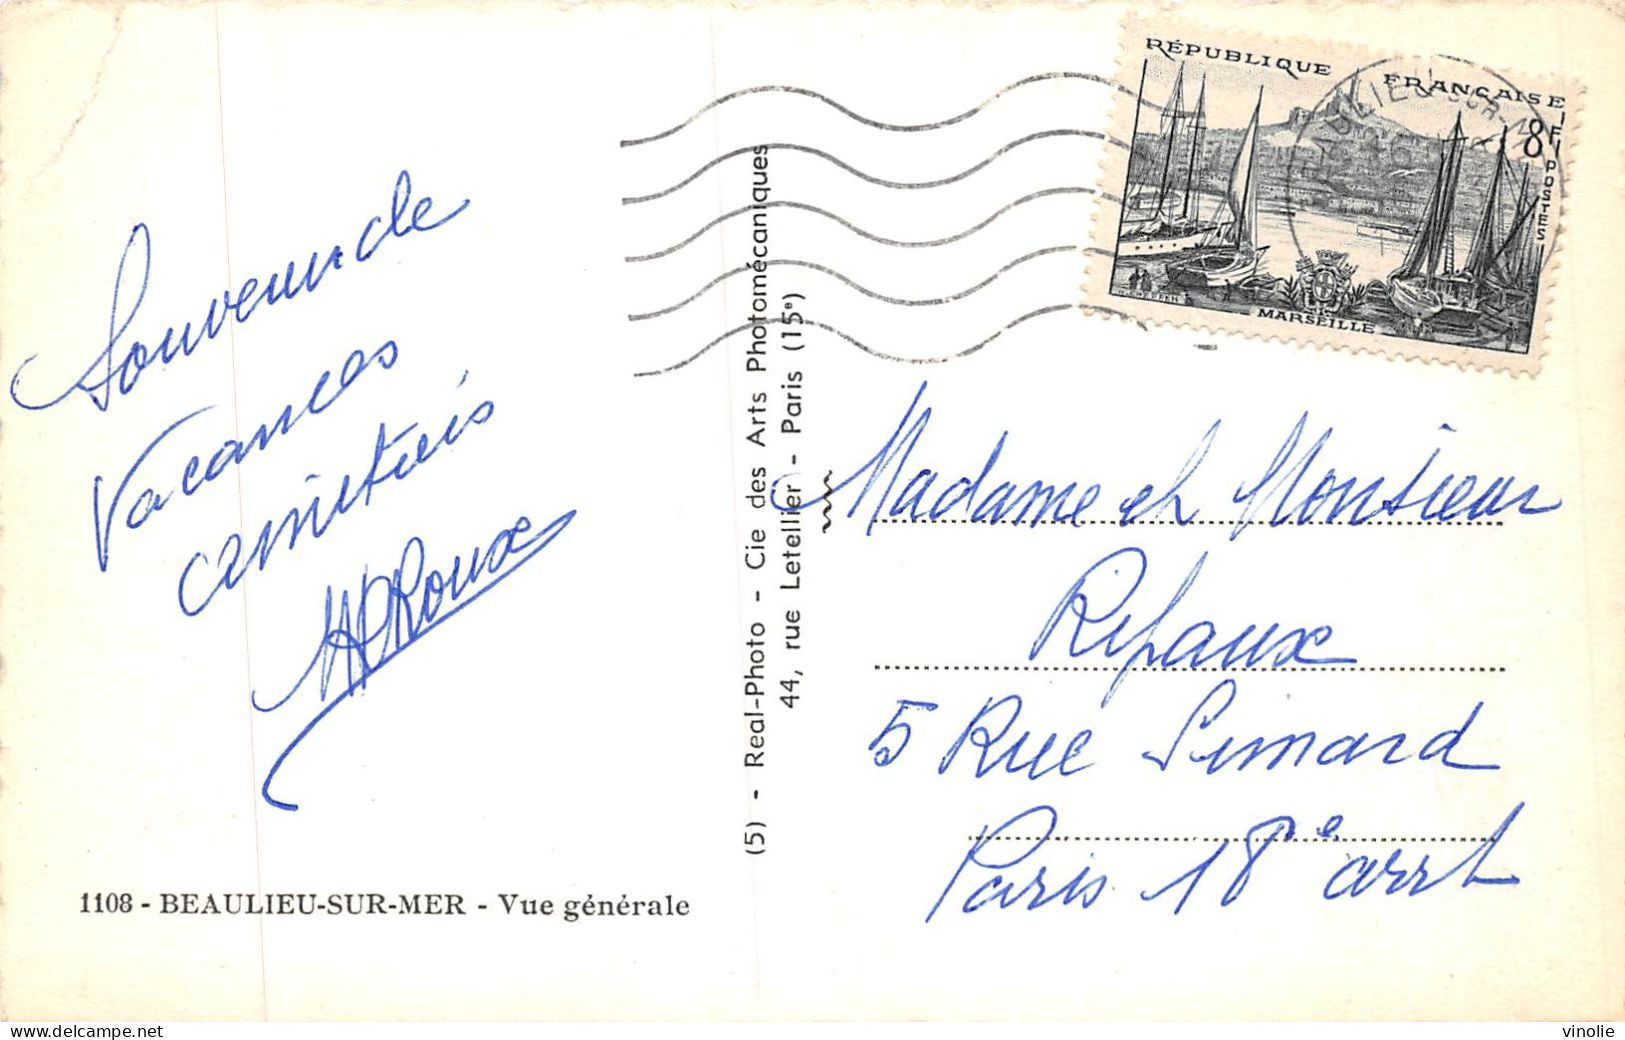 RÉPUBLIQUE FRANÇAISE
8F
POSTES
MARSEILLE
BEAULIEU-SUR-M
Souvenir de
Vacances
amitiés
Roux
1108 - BEAULIEU-SUR-MER - Vue générale
(5) - Real-Photo - Cie des Arts Photomécaniques
44, rue Letellier - Paris (15e)
Madame et Monsieur
Rifaux
5 Rue Simard
Paris 18e arrt
www.delcampe.net
vinolie